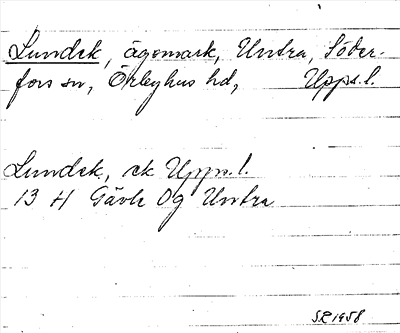 Lundek, ägomark, Untra, Söder-
fors sn, Örbyhus hd, Upps.l.
Lundek, ek Upps.l.
13 H Gävle Og Untra
SR 1958